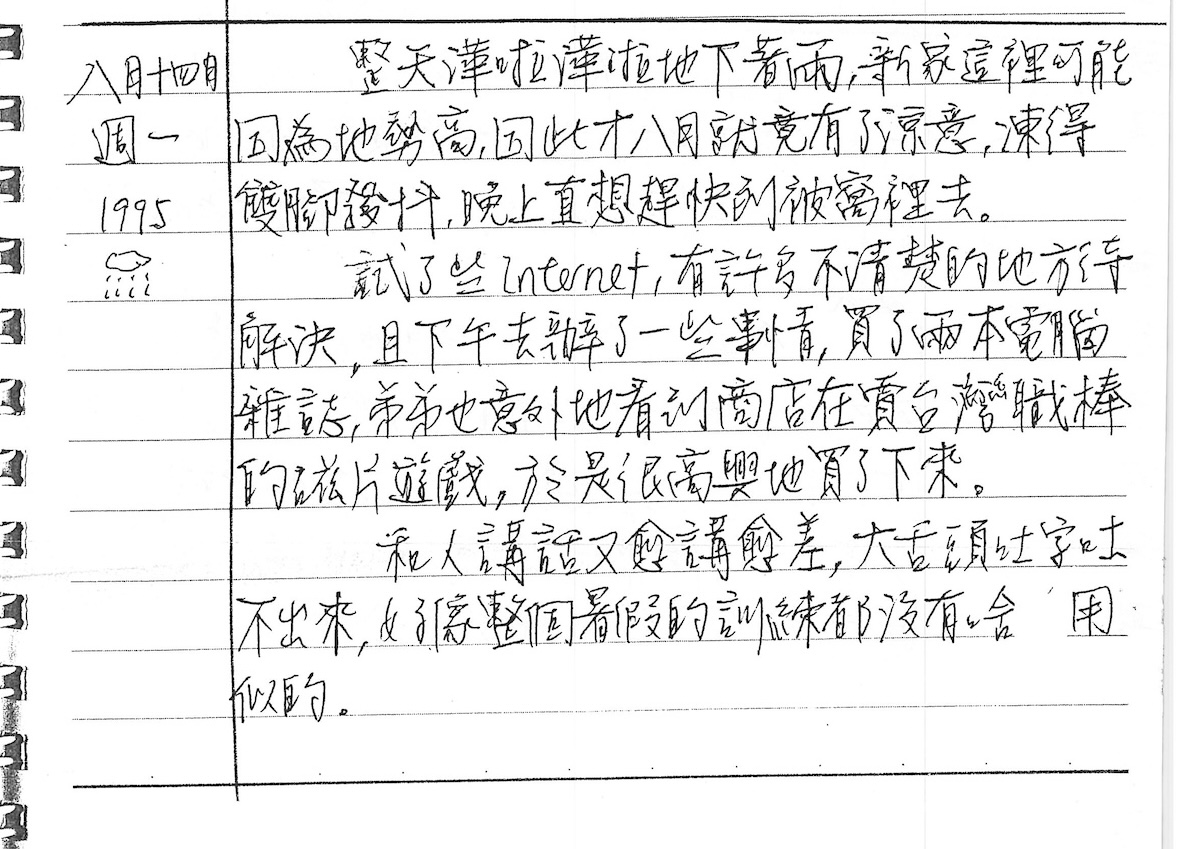 八月十四日
週一
1995
整天澕啦澕啦地下著雨,新家這裡可能
因為地勢高,因此才八月就竟有了涼意,凍得
雙腳發抖,晚上直想趕快到被窩裡去。
試了些Internet,有許多不清楚的地方待
解決,且下午去辦了一些事情,買了兩本電腦
雜誌,弟弟也意外地看到商店在賣台灣職棒
的磁片遊戲,於是很高興地買了下來。
和人講話又愈講愈差,大舌頭吐字吐
不出來,好像整個暑假的訓練都沒有啥 用
似的。